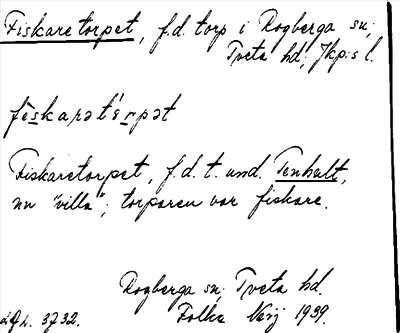 Fiskaretorpet, f.d. torp i Rogberga sn;
Tveta hd; Jkp:s l.
fèskarət'ɛrpət
Fiskaretorpet, f.d. t. und. Tenhult,
nu "villa"; torparen var fiskare.
Rogberga sn; Tveta hd.
3732. Folke 1939.